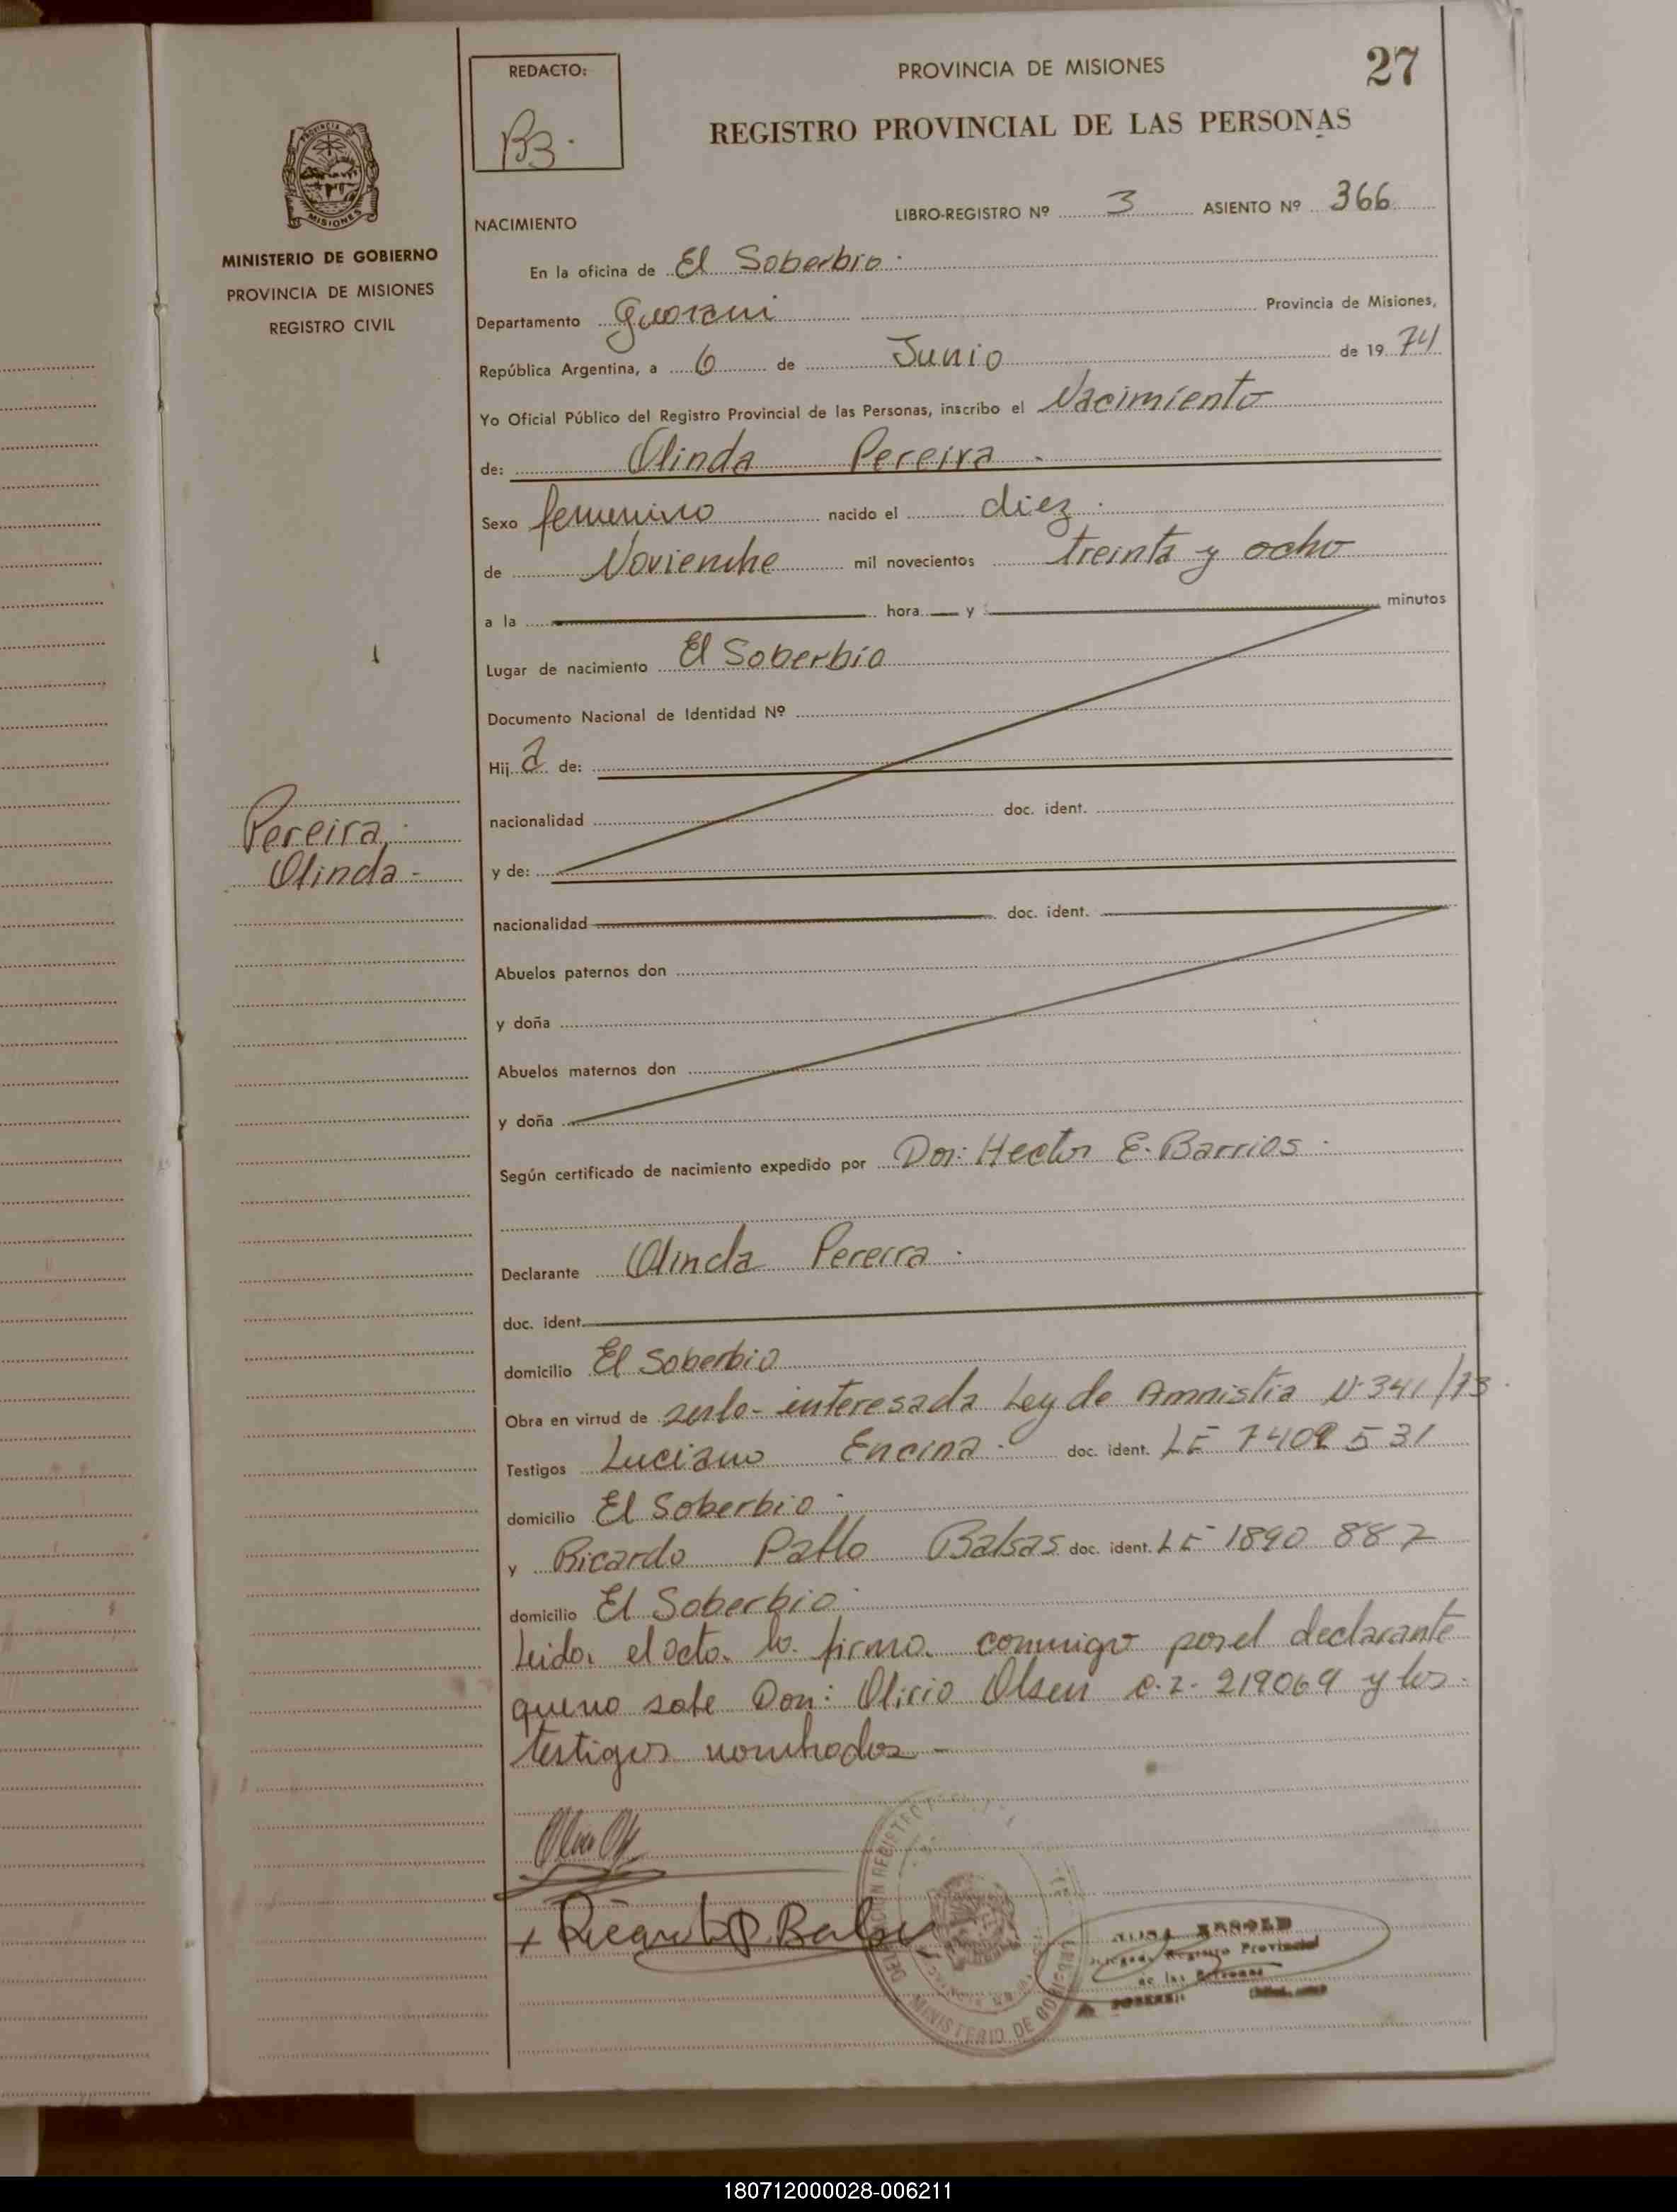 27
REDACTO:
PROVINCIA DE MISIONES
REGISTRO PROVINCIAL DE LAS PERSONAS
MISIONES
MINISTERIO DE GOBIERNO
PROVINCIA DE MISIONES
REGISTRO CIVIL
NACIMIENTO
LIBRO-REGISTRO Nº 3 ASIENTO Nº 366
En la oficina de El Soberbio.
Departamento Guarani Provincia de Misiones,
República Argentina, a 6 de Junio de 1974
Yo Oficial Público del Registro Provincial de las Personas, inscribo el Nacimiento
de: Olinda Pereira.
Sexo femenino nacido el diez.
de Noviembre mil novecientos treinta y ocho
a la hora y minutos
Lugar de nacimiento El Soberbio
Documento Nacional de Identidad Nº
Hij a de:
nacionalidad doc. ident.
Pereira
Olinda -
y de:
nacionalidad doc. ident.
Abuelos paternos don
y doña
Abuelos maternos don
y doña
Según certificado de nacimiento expedido por Don: Hector E. Barrios.
Declarante Olinda Pereira.
doc. ident.
domicilio El Soberbio
Obra en virtud de auto-interesada Ley de Amnistia Nº 341/73.
Testigos Luciano Encina. doc. ident. LE 7402531
domicilio El Soberbio.
y Ricardo Pablo Balsas doc. ident. LE 1890 887
domicilio El Soberbio.
Leido. el acto. lo firma. conmigo por el declarante
que no sabe Don: Olirio Olsen c.i. 219069 y los
testigos nombrados -
Ricardo P. Balsa
MINISTERIO DE GOBIERNO
Registro Provincial
de las Personas
180712000028-006211